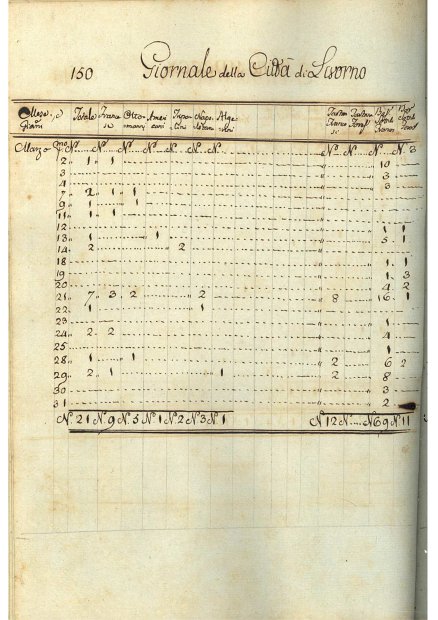 150 Giornale della Città di Livorno
Mese, e Totale France Otto Ameri Inpo Algie
Giorni si manni cani rini
Marzo P.mo N.º N.º N.º N.º N.º N.º N.º N.º N.º N.º N.º 3
2 1 1 10
3 3
4 3
7 2 1 1
9 1 1
11 1 1
12 1 1
13 1 1 5 1
14 2 2
18 1 1
19 1 3
20 4 2
21 7 3 2 2 8 16 1
22 1 1
23 1
24 2 2 4
25 1
28 1 1 2 6 2
29 2 1 1 2 8
30 3
31 2
N.º 21 N.º 9 N.º 5 N.º 1 N.º 2 N.º 3 N.º 1 N.º 12 N.º N.º 69 N.º 11